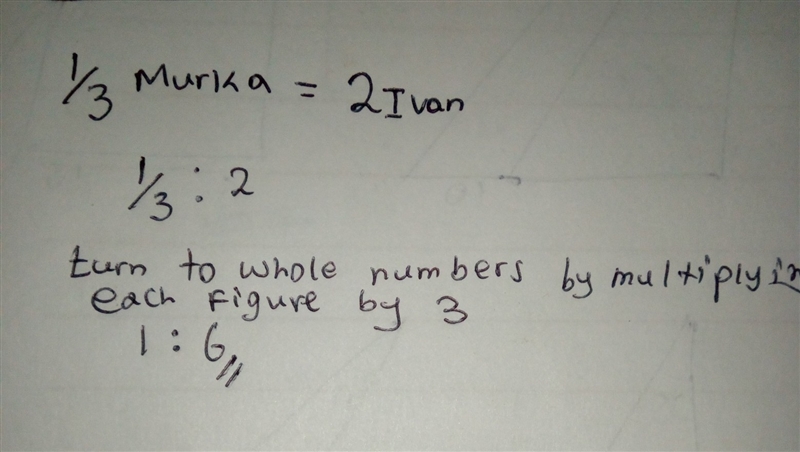 1/3 Murka = 2 Ivan
1/3 : 2
turn to whole numbers by multiplyin
each figure by 3
1 : 6